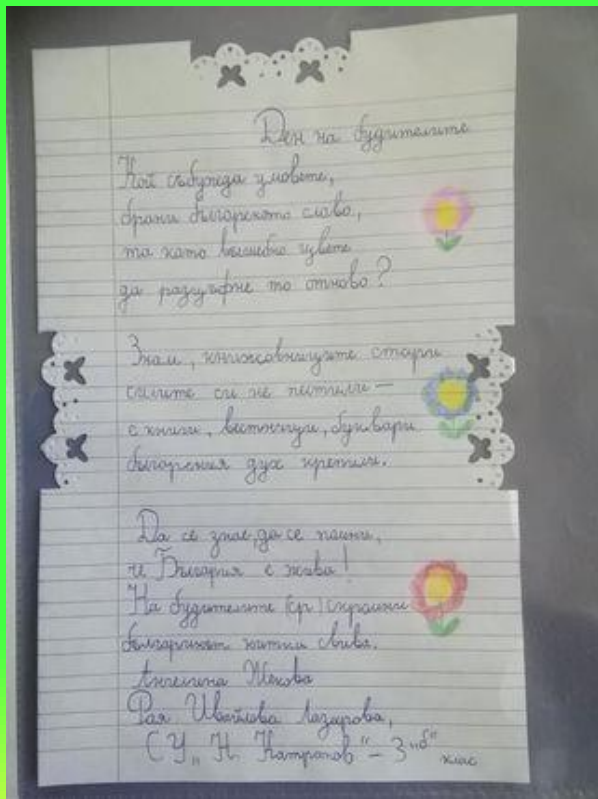 Ден на будителите
Кой събужда умовете,
брани българското слово,
та като вълшебно цвете
да разцъфне то отново?
Знам, книжовниците стари
силите си не пестили –
с книги, вестници, буквари
българския дух крепили.
Да се знае, да се помни,
че България е жива!
На будителите (ср) скромни
българинът китки свива.
Ангелина Жекова
Рая Ивайлова Лазарова,
СУ „Н. Катранов“ – 3 „б“ клас